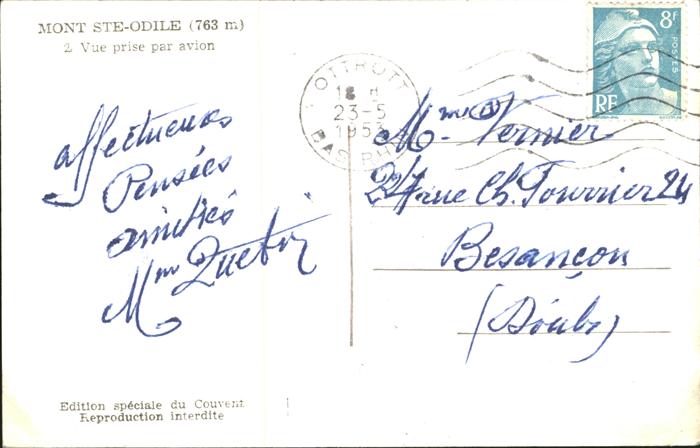 MONT STE-ODILE (763 m)
2. Vue prise par avion
affectueuses
Pensées
amitiés
Mme
Edition spéciale du Couvent
Reproduction interdite
OTTROTT
23-5
1953
BAS-RHIN
8F
POSTES
RF
Mme Vernier
24 rue Ch. Fourrier 24
Besançon
(Doubs)